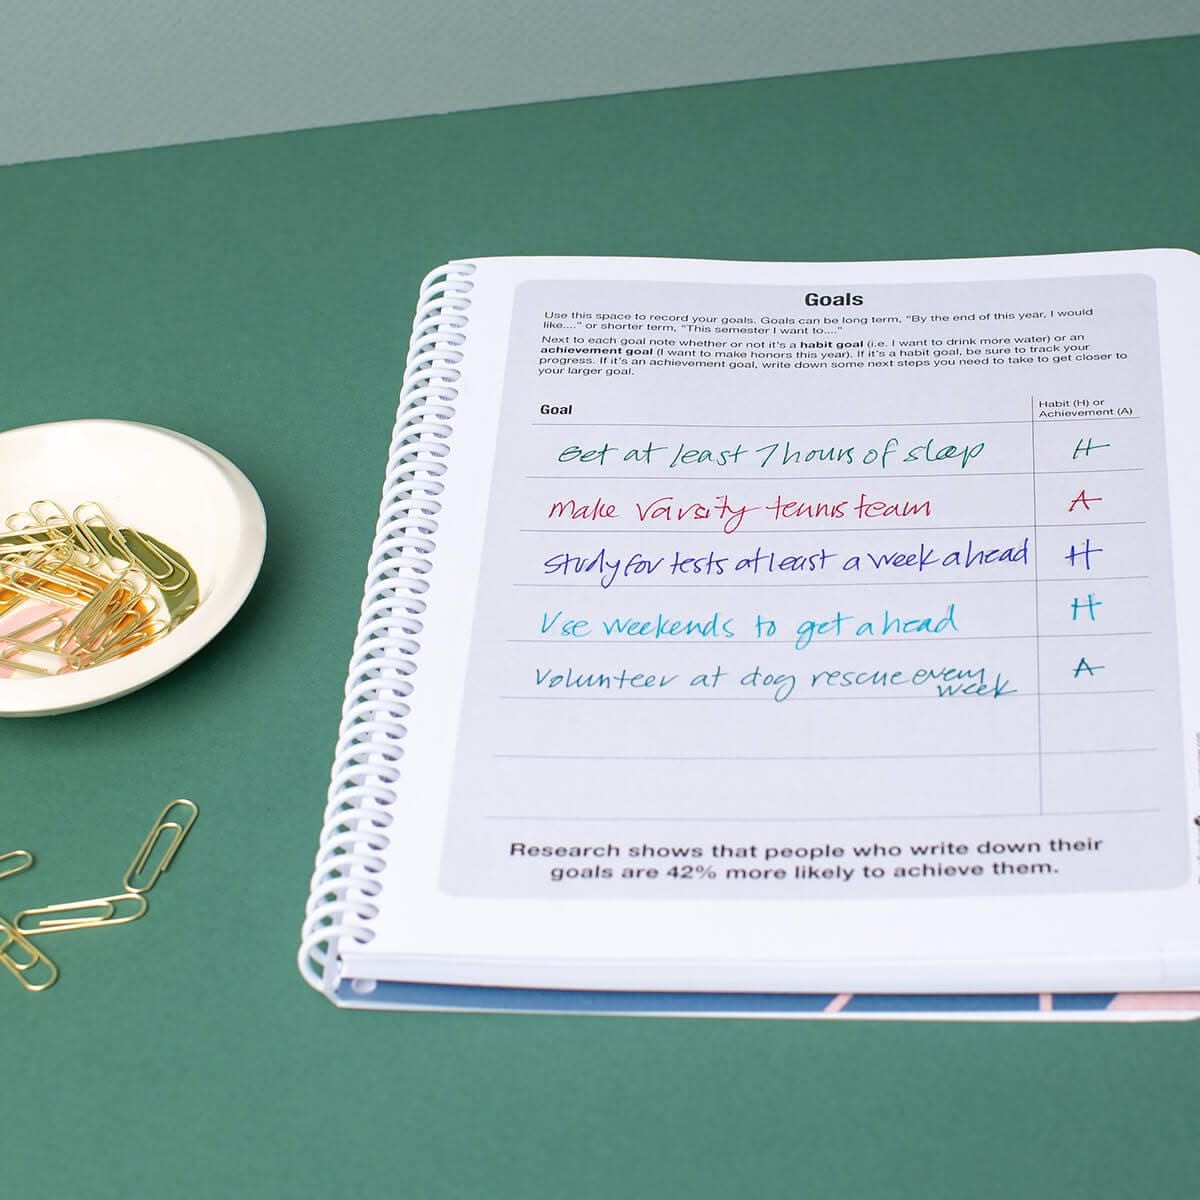 Goals
Use this space to record your goals. Goals can be long term, "By the end of this year, I would
like...." or shorter term, "This semester I want to...."
Next to each goal note whether or not it's a habit goal (i.e. I want to drink more water) or an
achievement goal (I want to make honors this year). If it's a habit goal, be sure to track your
progress. If it's an achievement goal, write down some next steps you need to take to get closer to
your larger goal.
Goal
Habit (H) or
Achievement (A)
Get at least 7 hours of sleep H
Make varsity tennis team A
Study for tests at least a week ahead H
Use weekends to get ahead H
Volunteer at dog rescue every A
week
Research shows that people who write down their
goals are 42% more likely to achieve them.